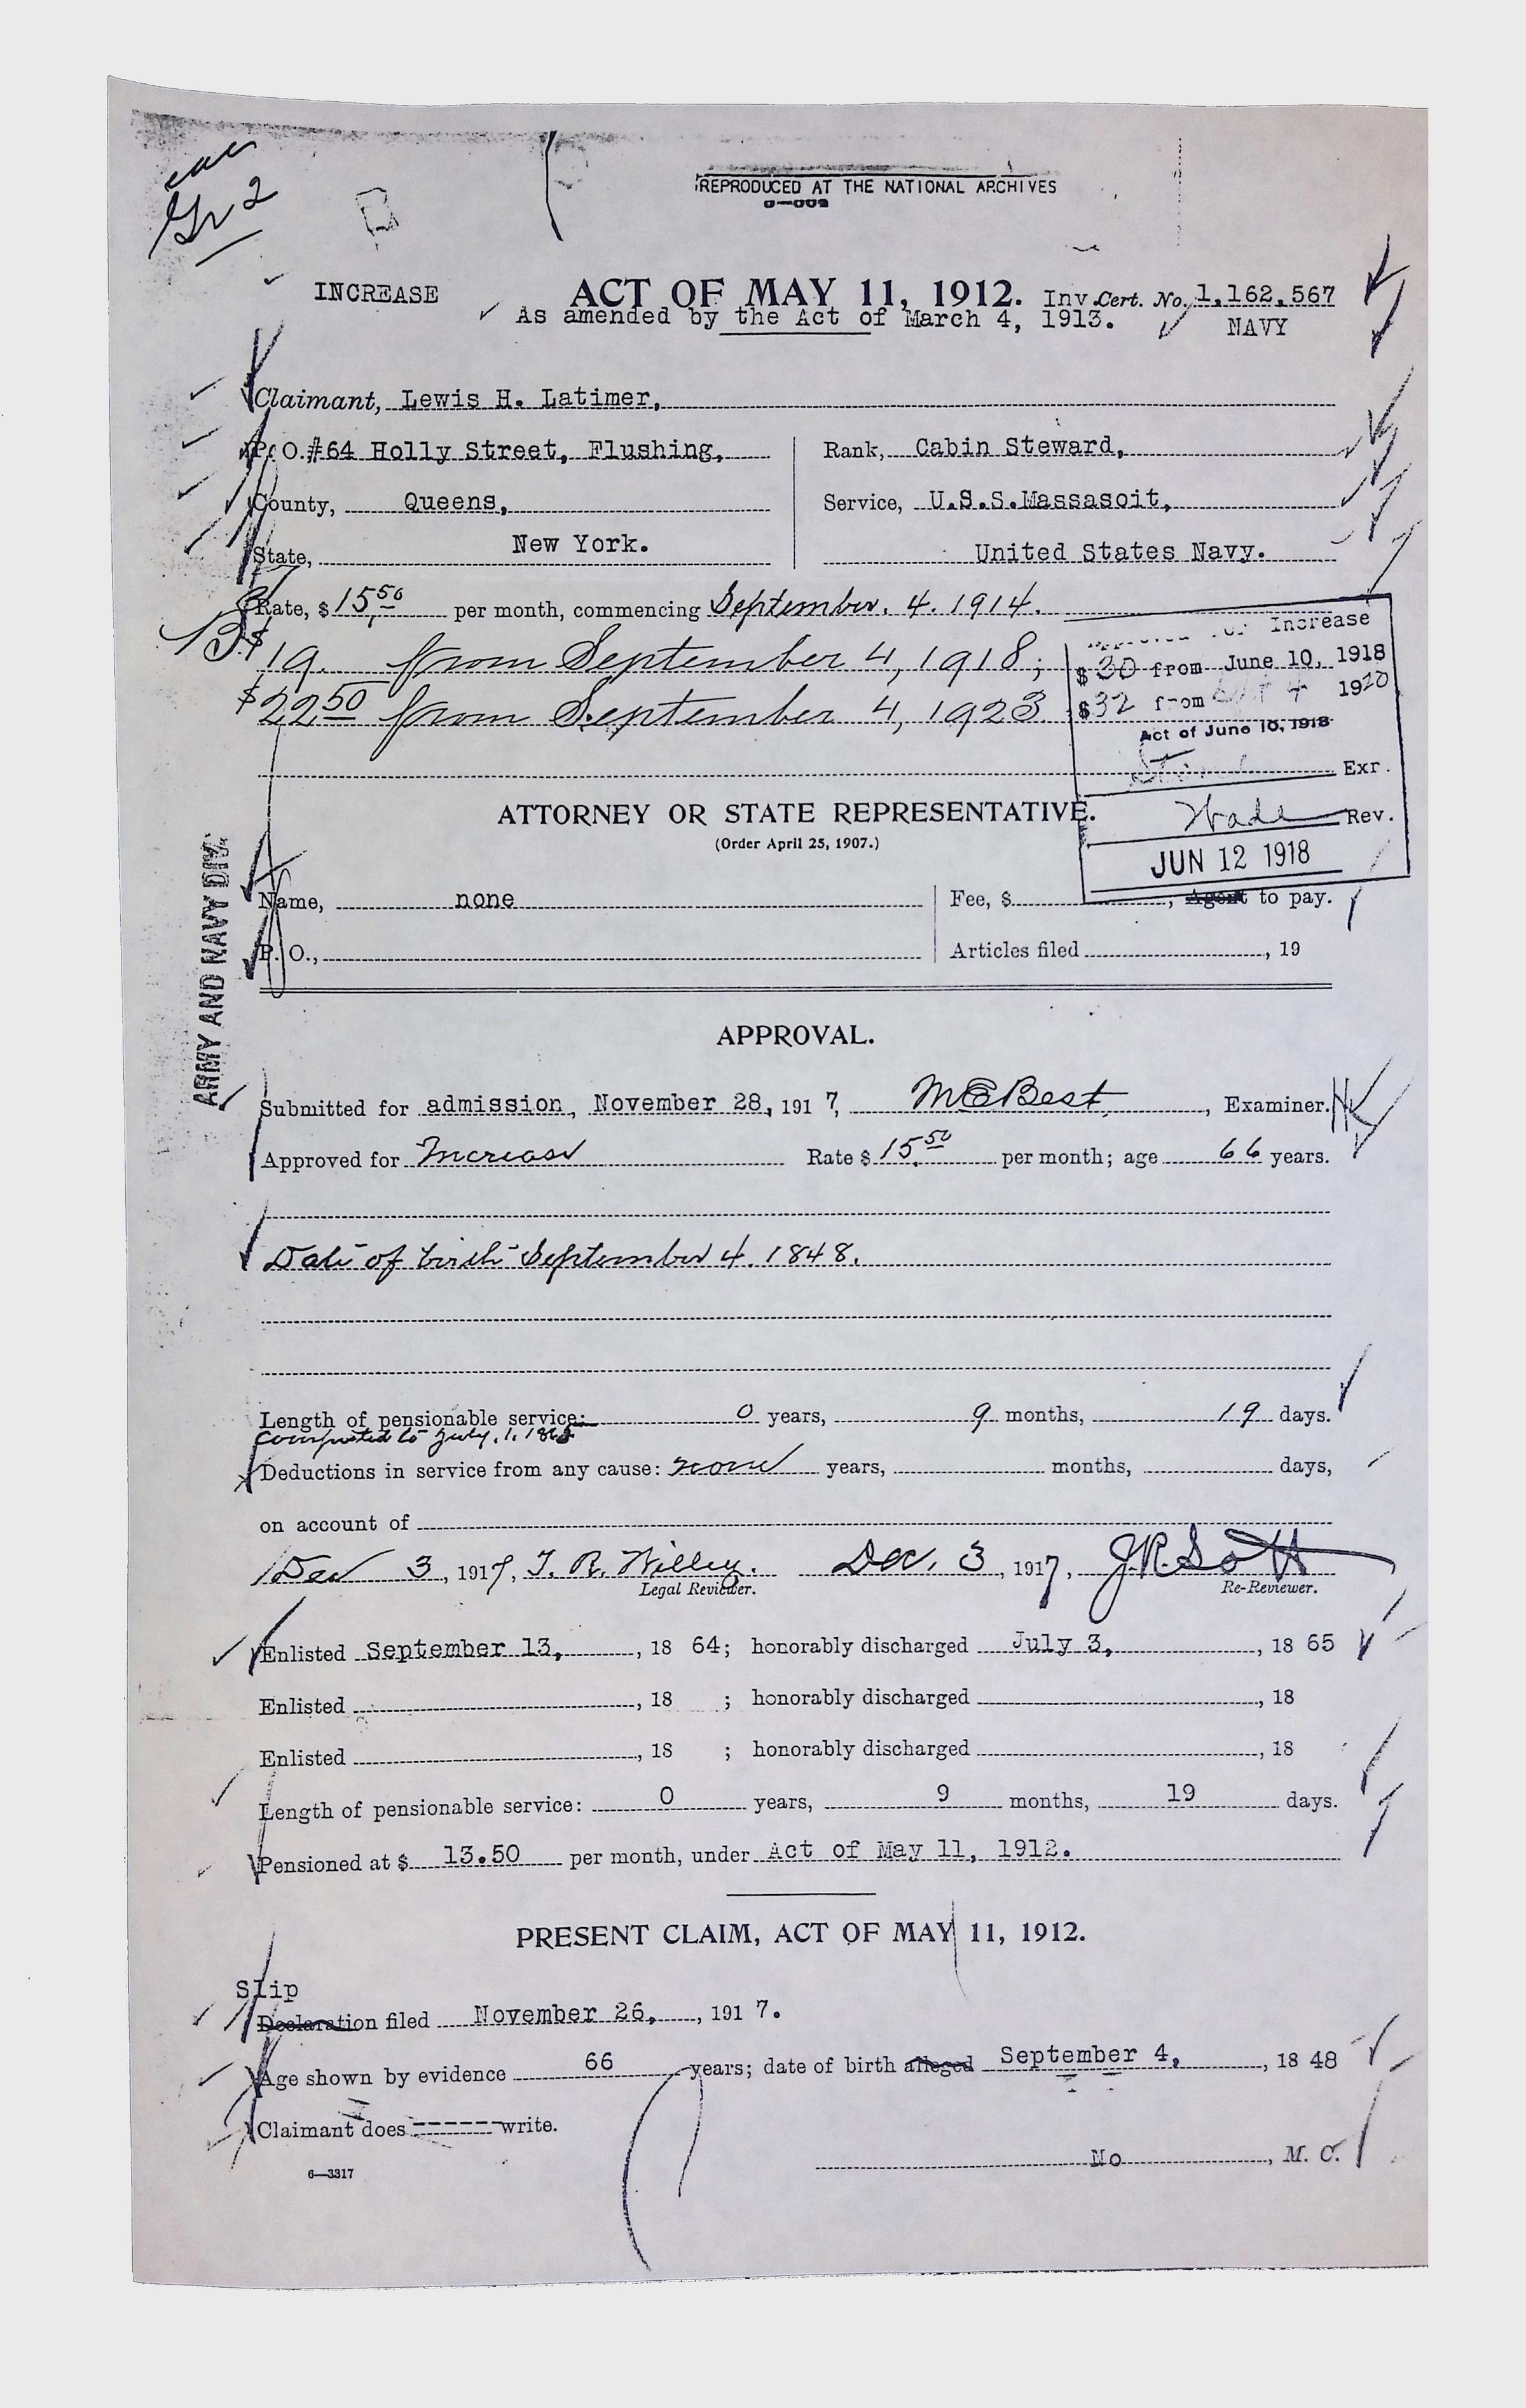 Gr 2
REPRODUCED AT THE NATIONAL ARCHIVES
INCREASE
ACT OF MAY 11, 1912. Inv Cert. No. 1,162,567
As amended by the Act of March 4, 1913. NAVY
Claimant, Lewis H. Latimer,
P. O. #64 Holly Street, Flushing, Rank, Cabin Steward,
County, Queens, Service, U.S.S.Massasoit,
State, New York. United States Navy.
Rate, $ 15.50 per month, commencing September. 4. 1914.
$19. from September 4, 1918;
$22 50 from September 4, 1923.
Increase
$ 30 from June 10, 1918
$ 32 from 4 1920
Act of June 10, 1918
Exr.
Wade Rev.
JUN 12 1918
ATTORNEY OR STATE REPRESENTATIVE.
(Order April 25, 1907.)
Name, none Fee, $ , Agent to pay.
P. O., Articles filed , 19
ARMY AND NAVY DIV.
APPROVAL.
Submitted for admission, November 28, 191 7, M E Best, , Examiner.
Approved for Increase Rate $ 15.50 per month; age 66 years.
Date of birth September 4. 1848.
Length of pensionable service: 0 years, 9 months, 19 days.
Computed to July. 1. 1865
Deductions in service from any cause: none years, months, days,
on account of
Dec 3, 1917, T. R. Willey. Dec. 3, 1917, J R. Scott
Legal Reviewer. Re-Reviewer.
Enlisted September 13, , 18 64; honorably discharged July 3, , 18 65
Enlisted , 18 ; honorably discharged , 18
Enlisted , 18 ; honorably discharged , 18
Length of pensionable service: 0 years, 9 months, 19 days.
Pensioned at $ 13.50 per month, under Act of May 11, 1912.
PRESENT CLAIM, ACT OF MAY 11, 1912.
Slip
Declaration filed November 26, , 191 7.
Age shown by evidence 66 years; date of birth alleged September 4, , 18 48
Claimant does ------- write.
No , M. C.
6—3317